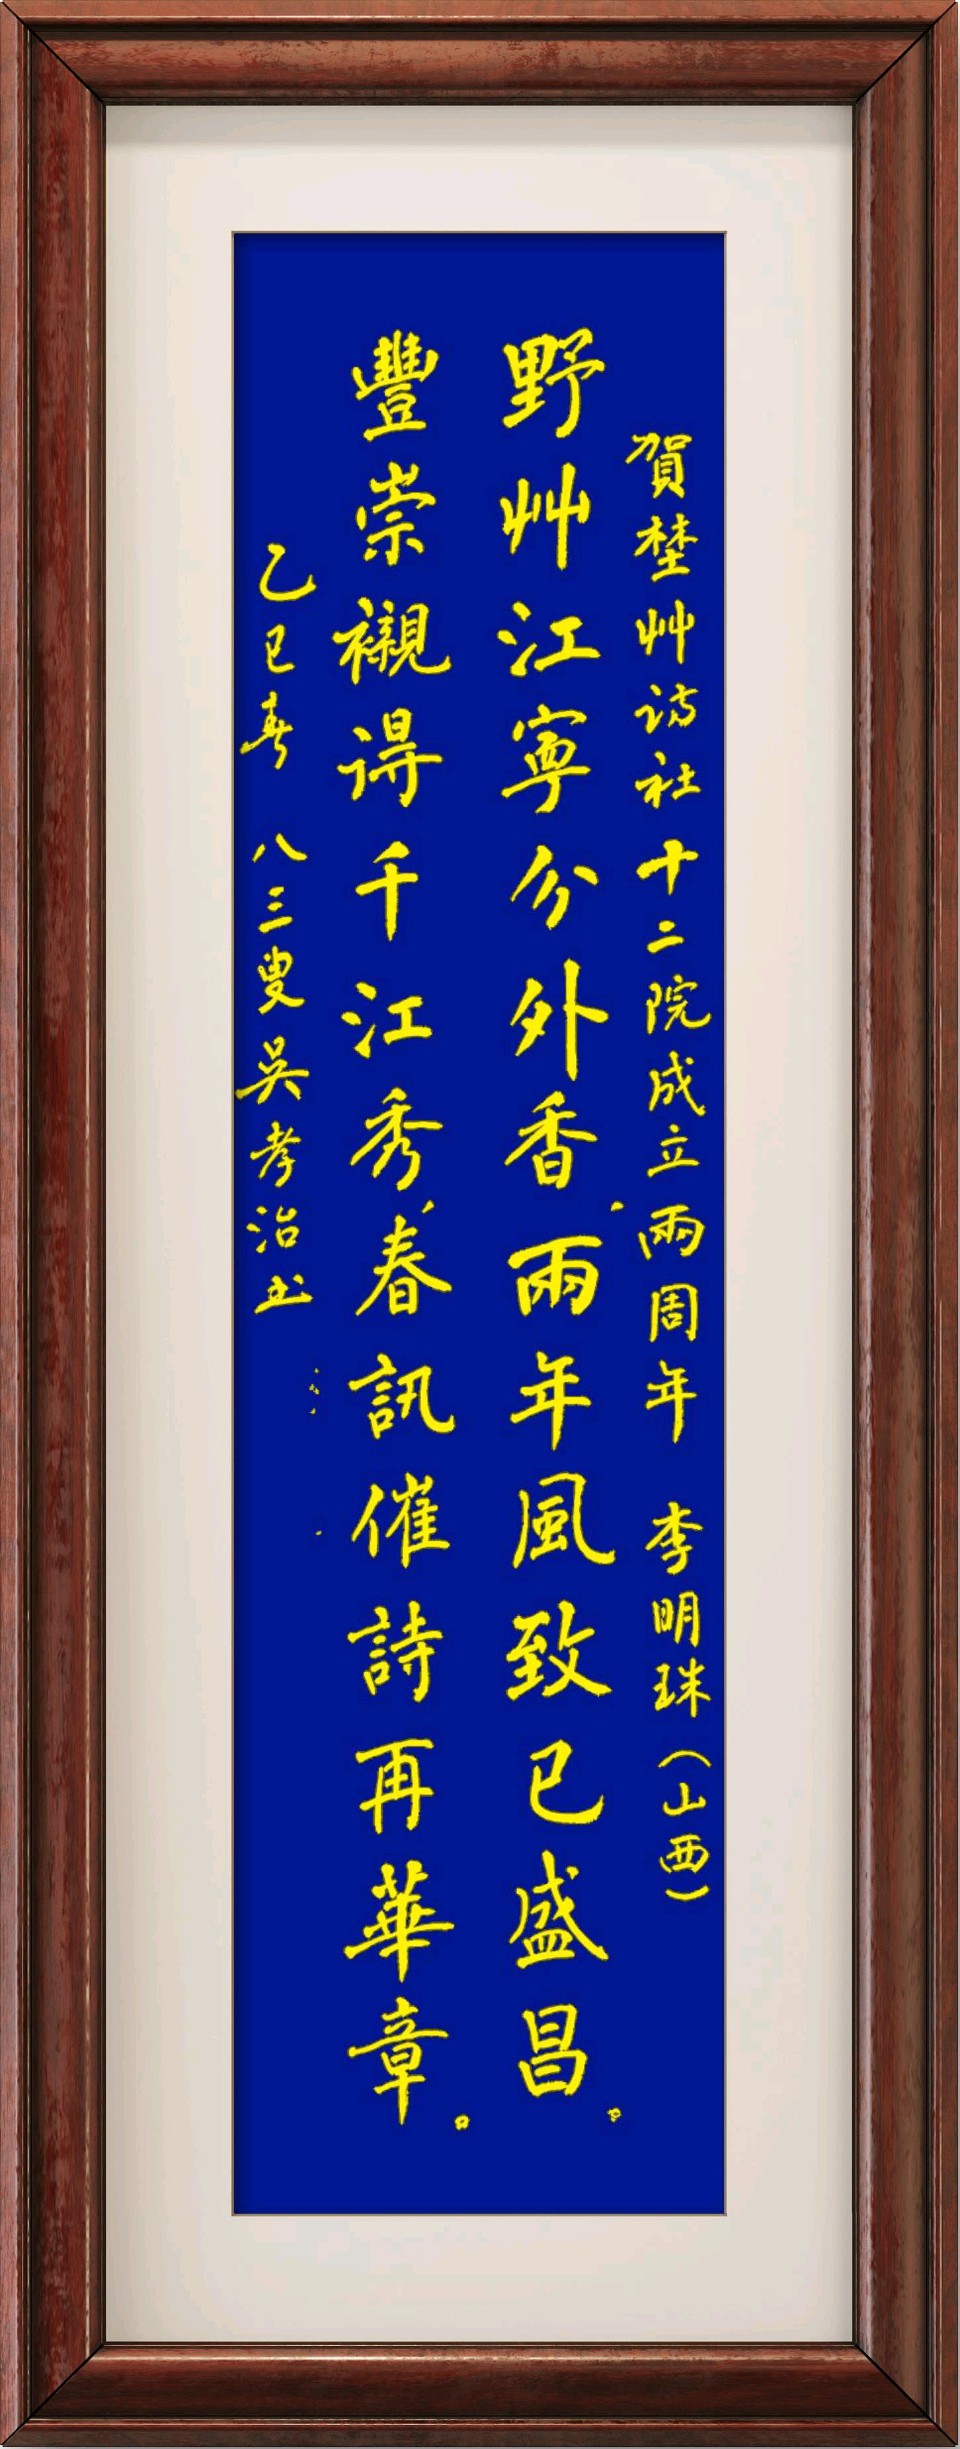 賀埜艸诗社十二院成立兩周年 李明珠（山西）
野艸江寧分外香，兩年風致已盛昌。
豐崇襯得千江秀，春訊催詩再華章。
乙巳春 八三叟吳孝治书